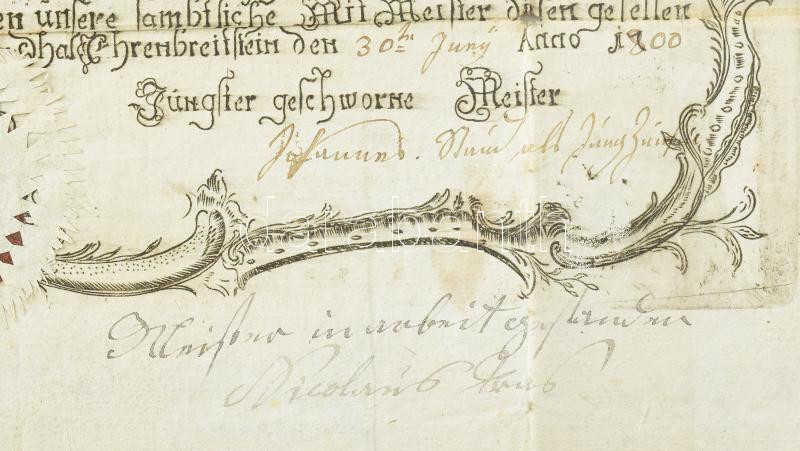 en unsere sambtliche Mit Meister disen gesellen
Thal Ehrenbreitstein den 30ten Junÿ Anno 1800
Jüngster geschworne Meister
Johannes. als
Meister in arbeit gestanden
Nicolaus